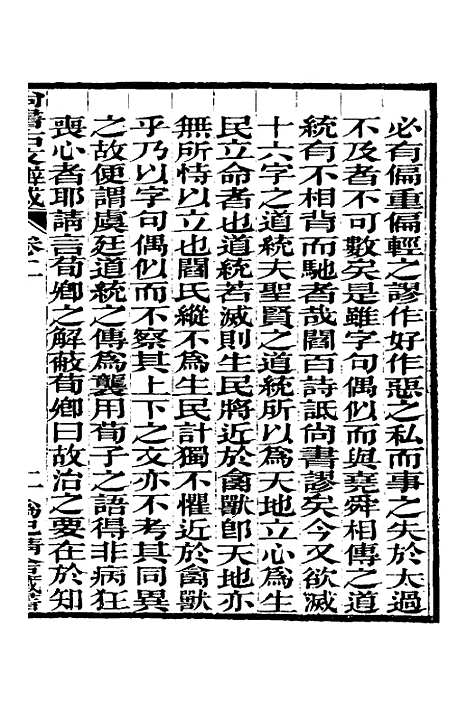 必有偏重偏輕之謬作好作惡之私而事之失於太過
不及者不可數矣是雖字句偶似而與堯舜相傳之道
統有不相背而馳者哉閻百詩詆尚書謬矣今又欲滅
十六字之道統夫聖賢之道統所以為天地立心為生
民立命者也道統若滅則生民將近於禽獸卽天地亦
無所恃以立也閻氏縱不為生民計獨不懼近於禽獸
乎乃以字句偶似而不察其上下之文亦不考其同異
之故便謂虞廷道統之傳為襲用荀子之語得非病狂
喪心者耶請言荀鄉之解蔽荀鄉曰故治之要在於知
卷二
二